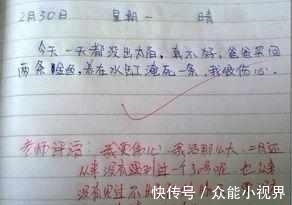 2月30日 星期一 晴
今天一天都没出太阳，真不好，爸爸买回
两条鱼，养在水缸，淹死一条，我很伤心。
老师评语：我更伤心，我活那么大，二月还
从来没有遇到过一个30号呢，也从来
没有见过不
快传号 / 众能小视界